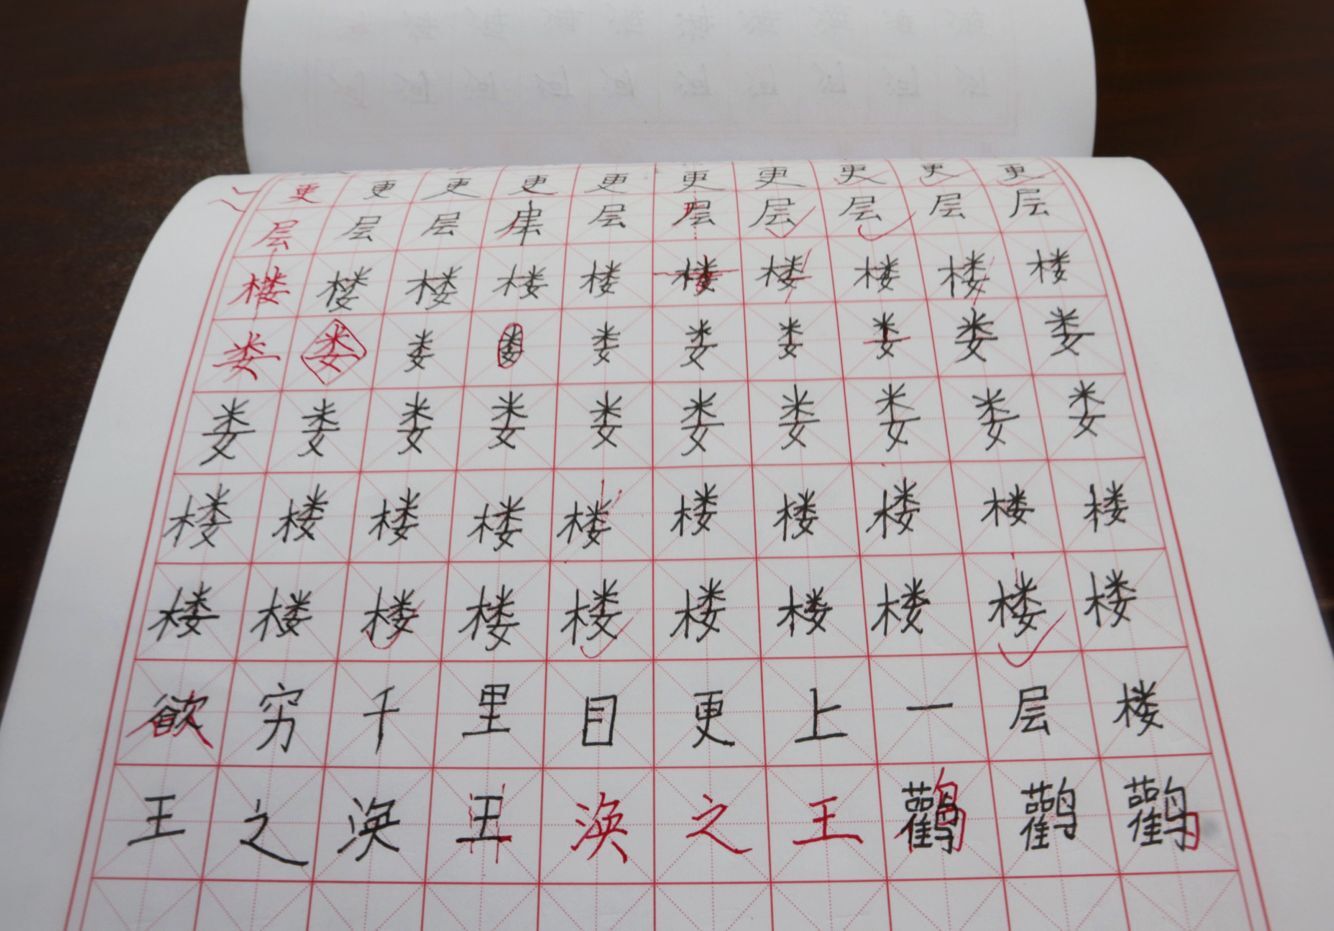 更更更更更更更更更更
层层层串层层层层层层
楼楼楼楼楼楼楼楼楼楼
娄娄娄娄娄娄娄娄娄娄
娄娄娄娄娄娄娄娄娄娄
楼楼楼楼楼楼楼楼楼楼
楼楼楼楼楼楼楼楼楼楼
欲穷千里目更上一层楼
王之涣王涣之王鹳鹳鹳